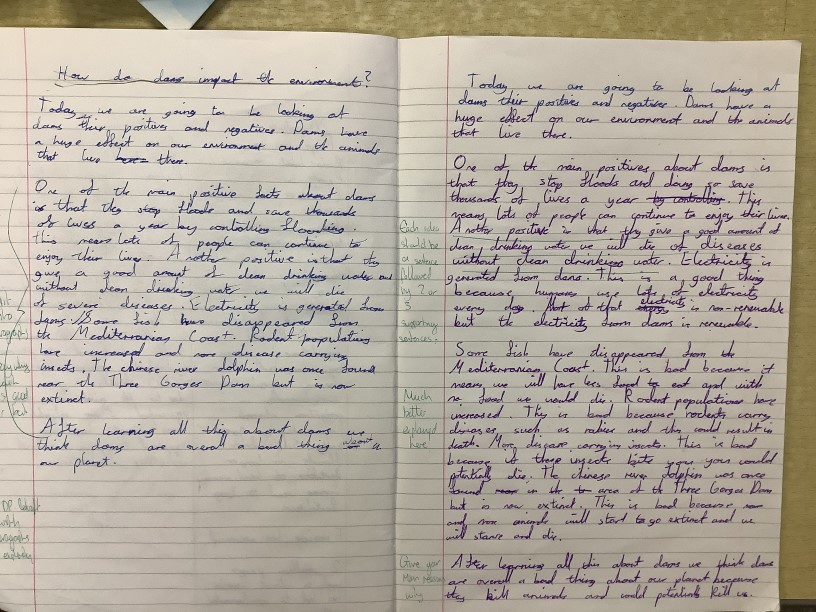 How do dams impact the environment?
Today we are going to be looking at
dams their positives and negatives. Dams have
a huge effect on our environment and the animals
that live there.
One of the main positive facts about dams
is that they stop floods and save thousands
of lives a year by controlling flooding.
this means lots of people can continue to
enjoy their lives. Another positive is that they
give a good amount of clean drinking water and
without clean drinking water we will die
of severe diseases. Electricity is generated from
dams. Some fish have disappeared from
the Mediterranean Coast. Rodent populations
have increased and more disease carrying
insects. The chinese river dolphin was once found
near the Three Gorges Dam but is now
extinct.
After learning all this about dams we
think dams are overall a bad thing about
our planet.
Today we are going to be looking at
dams their positives and negatives. Dams have a
huge effect on our environment and the animals
that live there.
One of the main positives about dams is
that they stop floods and doing so save
thousands of lives a year by controlling. This
means lots of people can continue to enjoy their lives.
Another positive is that they give a good amount of
clean drinking water we will die of diseases
without clean drinking water. Electricity is
generated from dams. This is a good thing
because humans use lots of electricity
every day. Most of that electricity is non-renewable
but the electricity from dams is renewable.
Some fish have disappeared from the
Mediterranean Coast. This is bad because it
means we will have less food to eat and with
no food we would die. Rodent populations have
increased. This is bad because rodents carry
diseases such as rabies and this could result in
death. More disease carrying insects. This is bad
because if these insects bite you you could
potentially die. The chinese river dolphin was once
found in the area of the Three Gorges Dam
but is now extinct. This is bad because
and more animals will start to go extinct and we
will starve and die.
After learning all this about dams we think dams
are overall a bad thing about our planet because
they kill animals and could potentially kill us.
Each idea
should be
a sentence
followed
by 2 or
3
supporting
sentences.
Much
better
explained
here
Give your
main reason
why